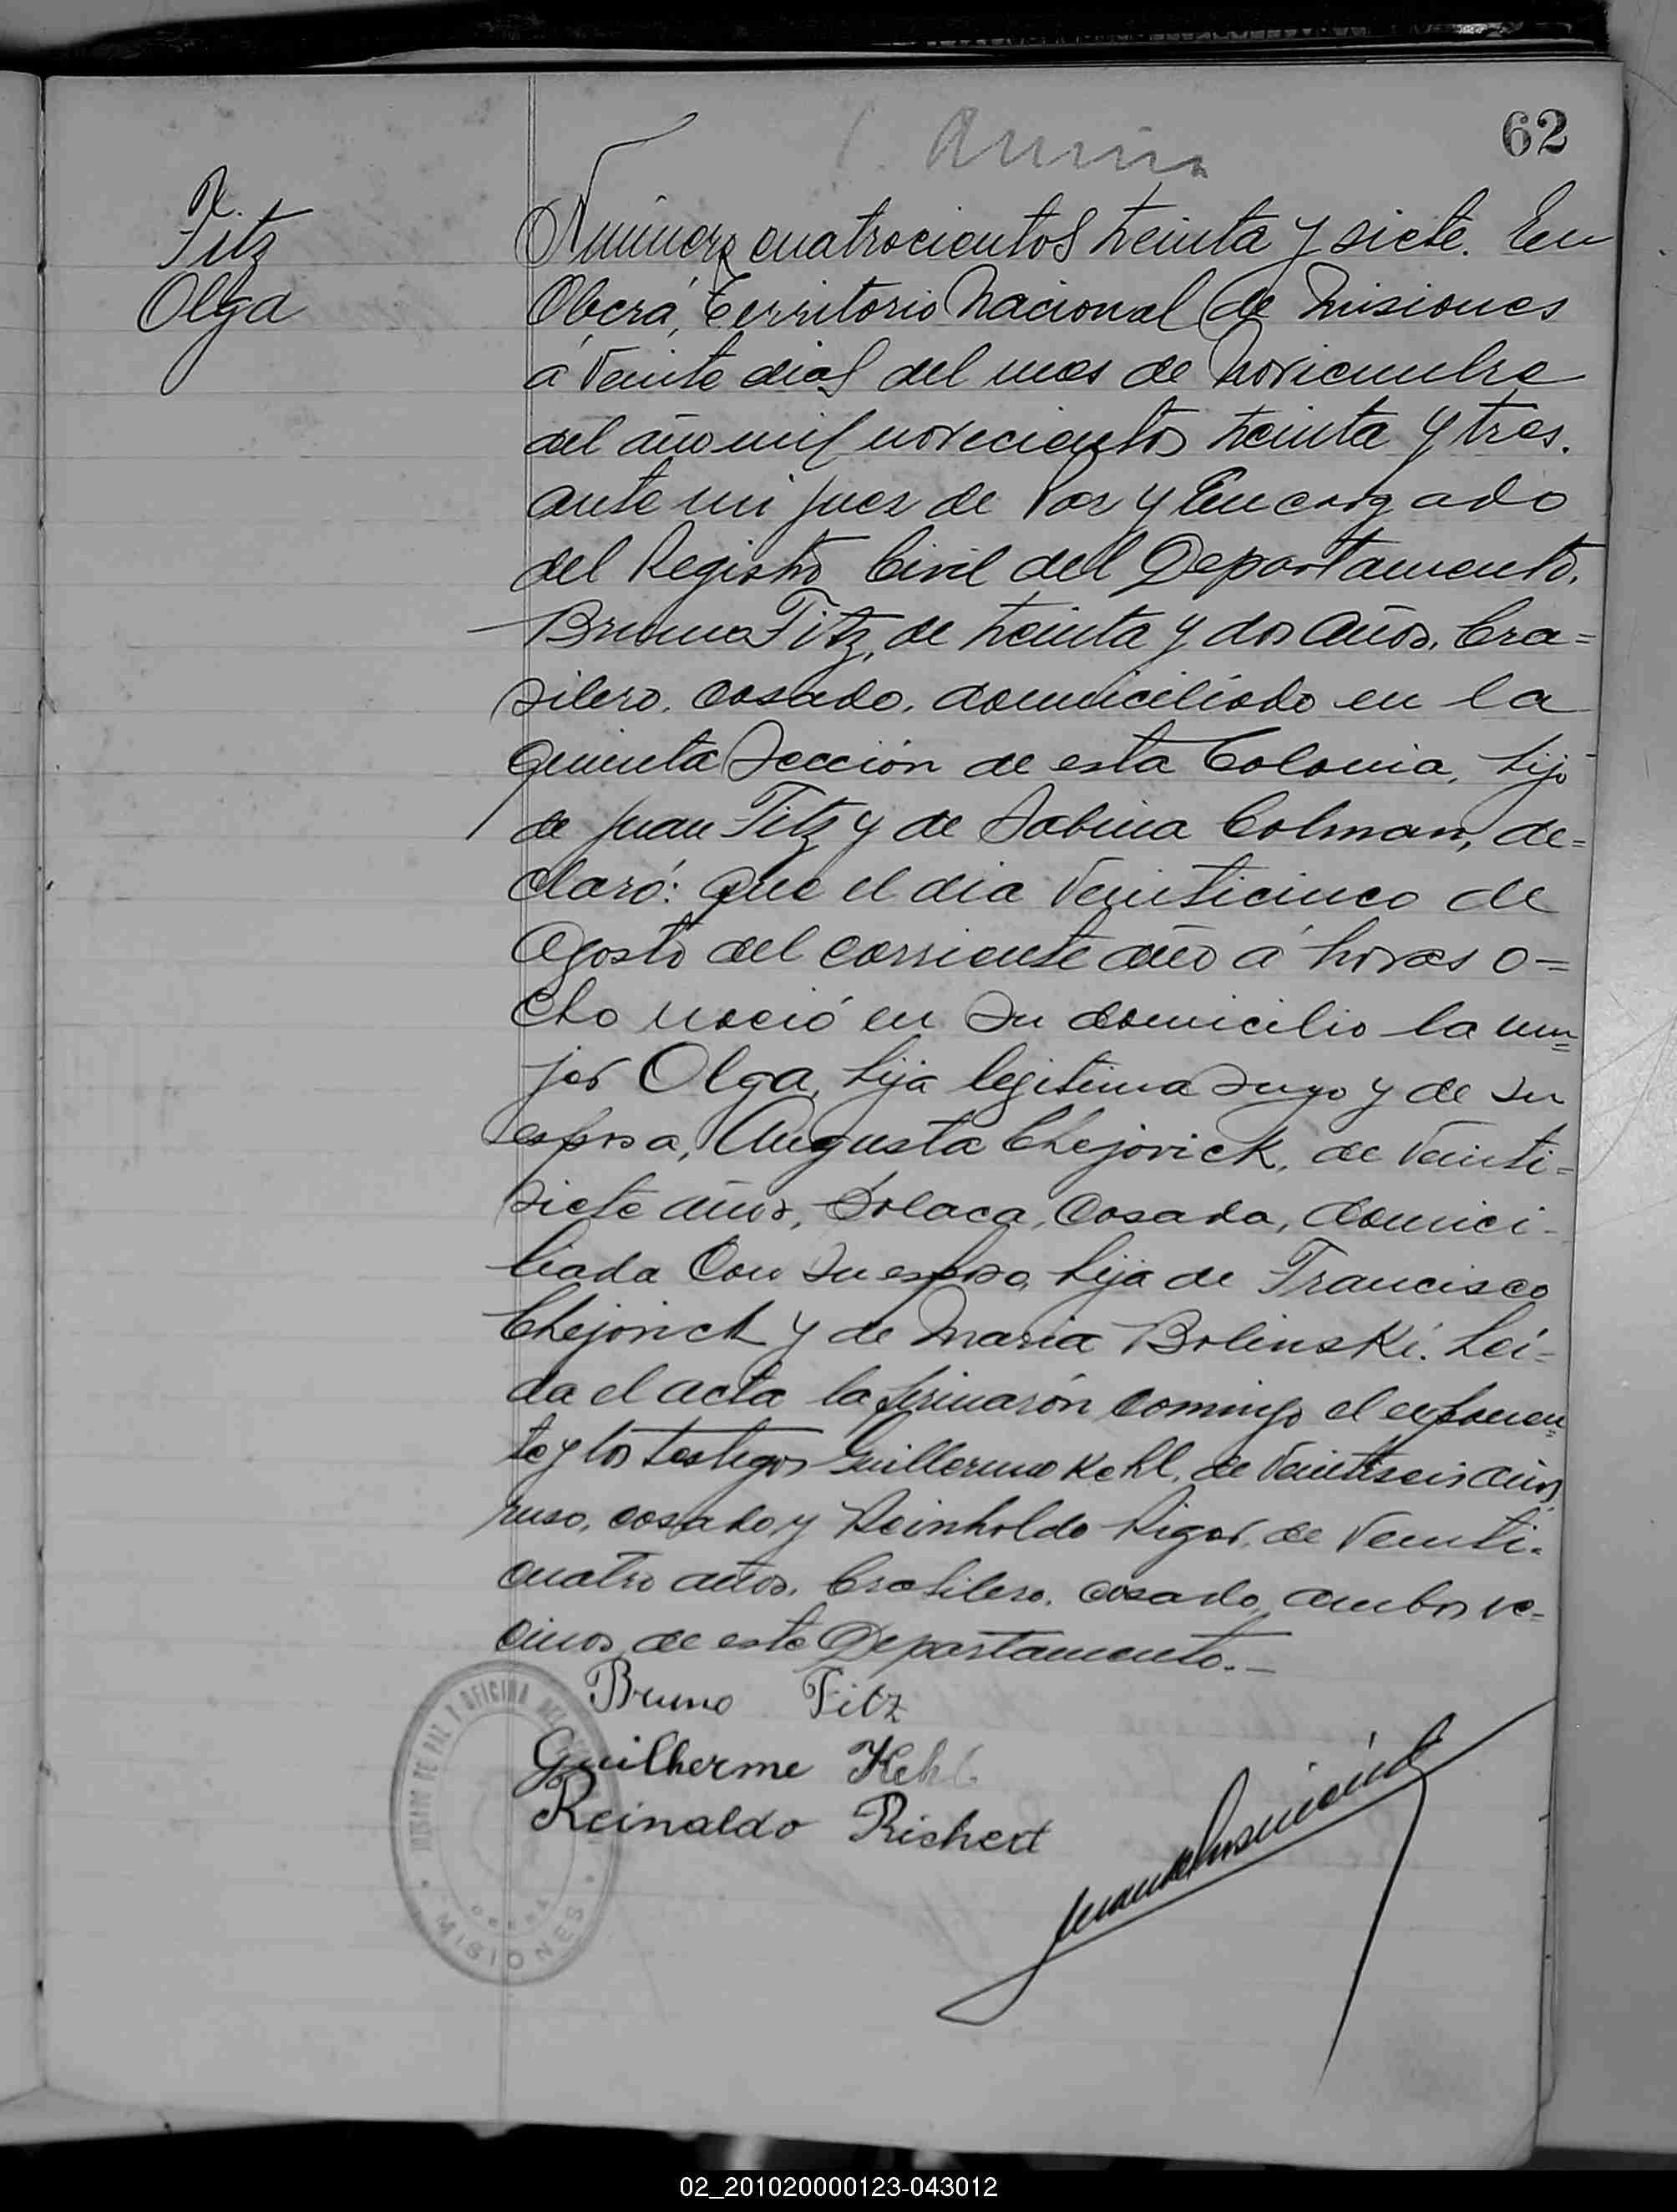 62
N.
Fitz
Olga
Número cuatrocientos treinta y siete. En
Oberá, Territorio Nacional de Misiones
á veinte dias del mes de Noviembre
del año mil novecientos treinta y tres.
ante mi Juez de Paz y Encargado
del Registro Civil del Departamento,
Bruno Fitz, de treinta y dos años, bra=
silero, casado, domiciliado en la
quinta Sección de esta Colonia, hijo
de Juan Fitz y de Sabina Colman, de=
claró: Que el dia veinticinco de
Agosto del corriente año á horas o=
cho nació en su domicilio la mu=
jer Olga, hija legitima suya y de su
esposa, Augusta Chejovick, de veinti=
siete años, polaca, casada, domici-
liada con su esposo, hija de Francisco
Chejovick y de Maria Bolinski. Lei=
da el acta la firmarón conmigo el exponen=
te y los testigos Guillermo Kehl, de veintiseis años,
ruso, casado y Reinholdo Rigert, de veinti-
cuatro años, brasilero, casado, ambos ve-
cinos de este Departamento.-
Bruno Fitz
Guilherme Kehl
Reinaldo Richert
JUZGADO DE PAZ Y OFICINA DEL
OBERÁ
MISIONES
02_201020000123-043012